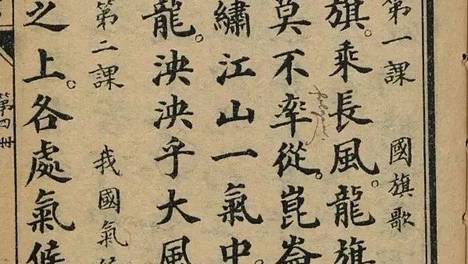 第一課 國旗歌
旗。乘長風。龍旗
莫不率從。崑崙
繡江山一氣中。
龍。泱泱乎大風
第二課 我國氣候
之上。各處氣候
第四冊